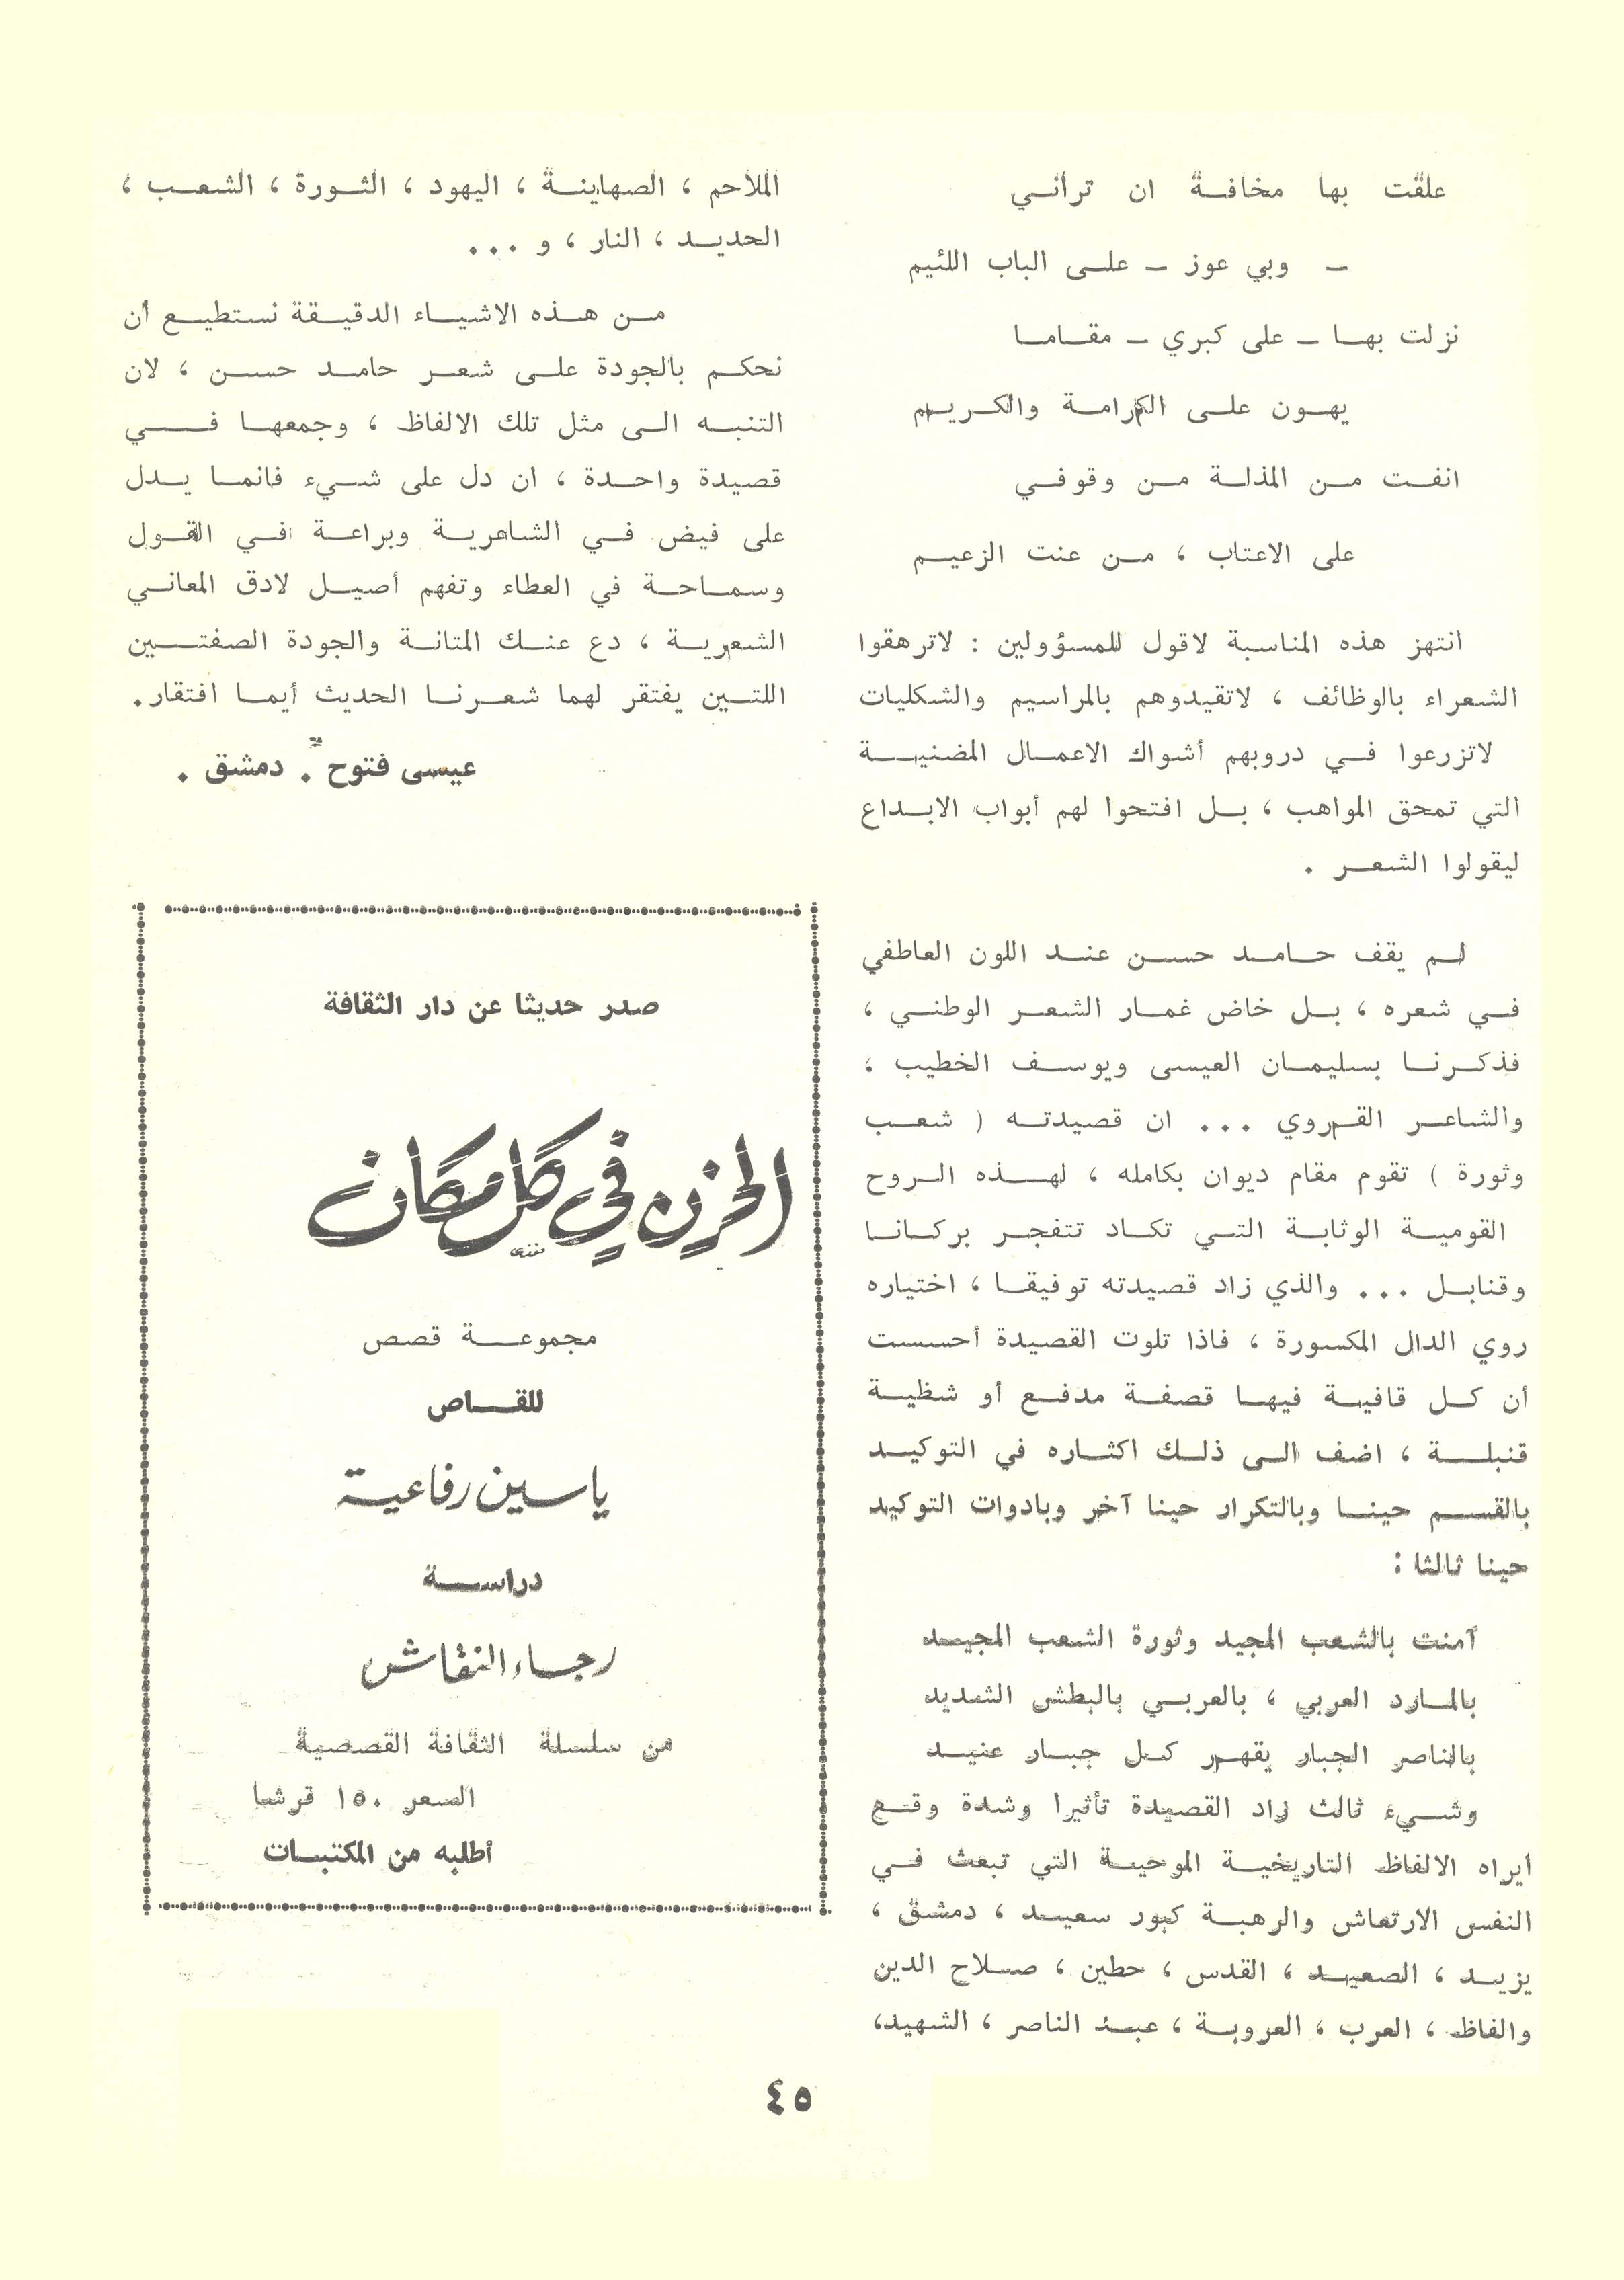 علقت بها مخافة ان ترأني
– وبي عوز – على الباب اللئيم
نزلت بها – على كبري – مقاما
يهون على الكرامة والكريم
انفت من المذلة من وقوفي
على الاعتاب ، من عنت الزعيم
انتهز هذه المناسبة لاقول للمسؤولين : لاترهقوا
الشعراء بالوظائف ، لاتقيدوهم بالمراسيم والشكليات
لاتزرعوا في دروبهم أشواك الاعمال المضنية
التي تمحق المواهب ، بل افتحوا لهم أبواب الابداع
ليقولوا الشعر .
لم يقف حامد حسن عند اللون العاطفي
في شعره ، بل خاض غمار الشعر الوطني ،
فذكرنا بسليمان العيسى ويوسف الخطيب ،
والشاعر القروي ... ان قصيدته ( شعب
وثورة ) تقوم مقام ديوان بكامله ، لهذه الروح
القومية الوثابة التي تكاد تتفجر بركانا
وقنابل ... والذي زاد قصيدته توفيقا ، اختياره
روي الدال المكسورة ، فاذا تلوت القصيدة أحسست
أن كل قافية فيها قصفة مدفع أو شظية
قنبلة ، اضف الى ذلك اكثاره في التوكيد
بالقسم حينا وبالتكرار حينا آخر وبادوات التوكيد
حينا ثالثا :
آمنت بالشعب المجيد وثورة الشعب المجيد
بالمارد العربي ، بالعربي بالبطش الشديد
بالناصر الجبار يقهر كل جبار عنيد
وشيء ثالث زاد القصيدة تأثيرا وشدة وقع
أيراه الالفاظ التاريخية الموحية التي تبعث في
النفس الارتعاش والرهبة كبور سعيد ، دمشق ،
يزيد ، الصعيد ، القدس ، حطين ، صلاح الدين
والفاظ ، العرب ، العروبة ، عبد الناصر ، الشهيد،
الملاحم ، الصهاينة ، اليهود ، الثورة ، الشعب ،
الحديد ، النار ، و ...
من هذه الاشياء الدقيقة نستطيع أن
نحكم بالجودة على شعر حامد حسن ، لان
التنبه الى مثل تلك الالفاظ ، وجمعها في
قصيدة واحدة ، ان دل على شيء فانما يدل
على فيض في الشاعرية وبراعة في القول
وسماحة في العطاء وتفهم أصيل لادق المعاني
الشعرية ، دع عنك المتانة والجودة الصفتين
اللتين يفتقر لهما شعرنا الحديث أيما افتقار.
عيسى فتوح . دمشق .
صدر حديثا عن دار الثقافة
الحزن في كل مكان
مجموعة قصص
للقاص
ياسين رفاعية
دراسة
رجاء النقاش
من سلسلة الثقافة القصصية
السعر ١٥٠ قرشا
أطلبه من المكتبات
٤٥